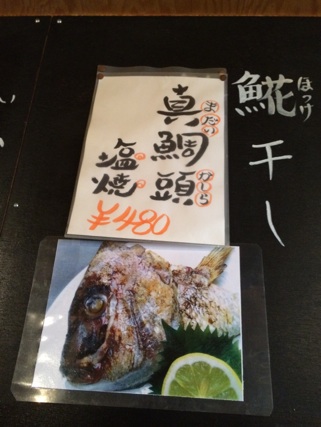 ほっけ
鯱干し
またい
真鯛頭
かしら
塩焼
¥480